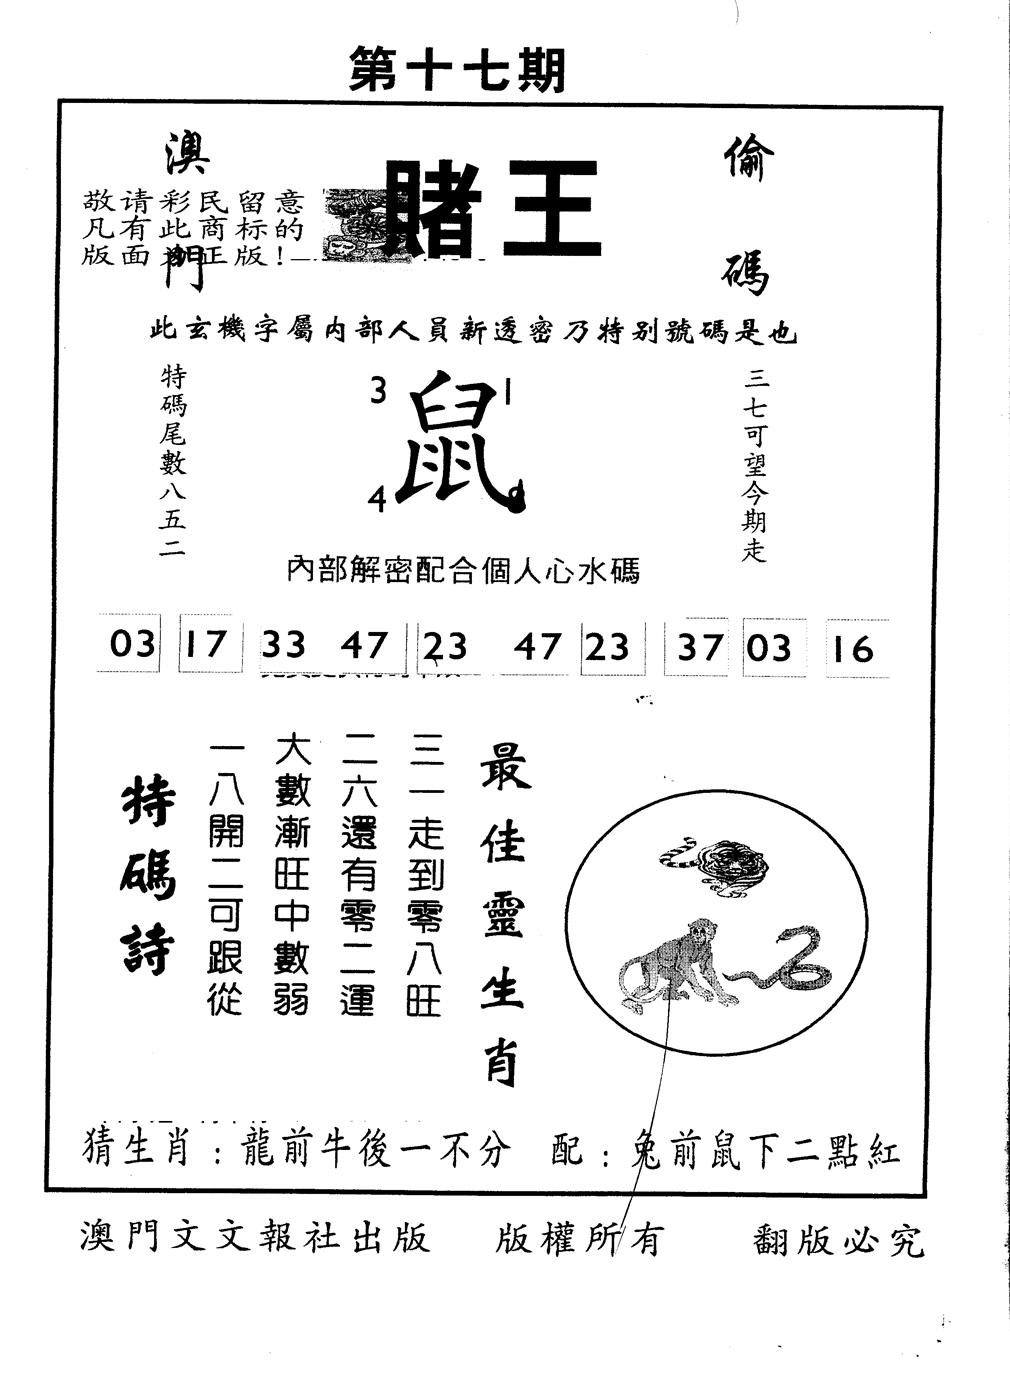 第十七期
澳門
賭王
偷碼
敬请彩民留意
凡有此商标的
版面 正版!
此玄機字屬内部人員新透密乃特别號碼是也
特碼尾數八五二
3 1
鼠
4
三七可望今期走
內部解密配合個人心水碼
03 17 33 47 23 47 23 37 03 16
最佳靈生肖
三一走到零八旺
二六還有零二運
大數漸旺中數弱
一八開二可跟從
特碼詩
猜生肖：龍前牛後一不分 配：兔前鼠下二點紅
澳門文文報社出版 版權所有 翻版必究